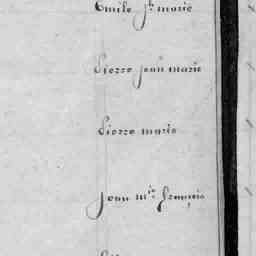 Emile jh marie
Pierre jean marie
Pierre marie
jean mie françois